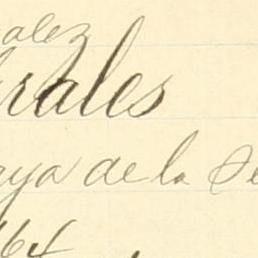 alez
rales
aya de la Se
64